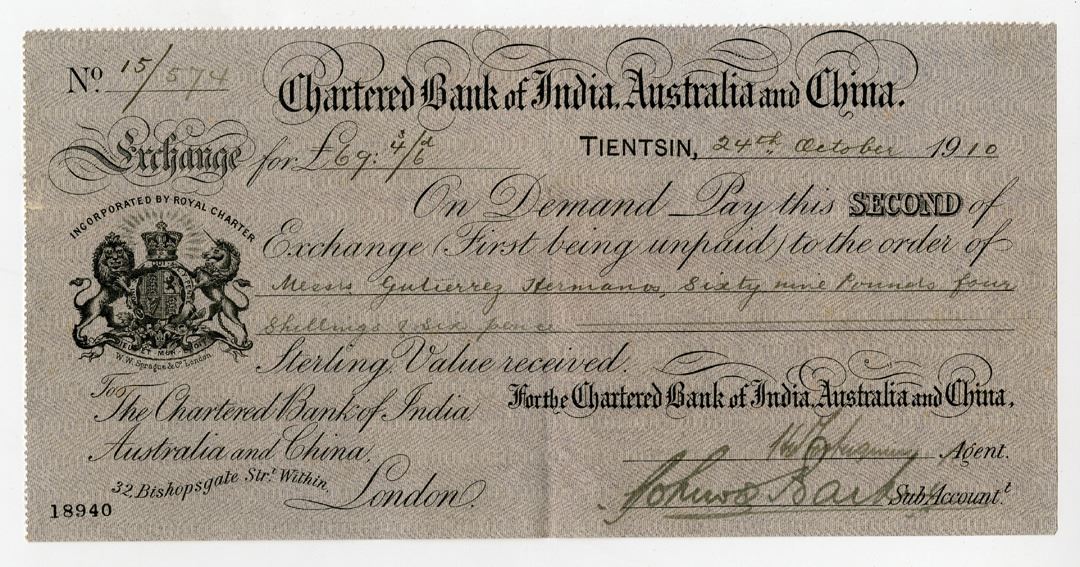 No. 15/574
Chartered Bank of India, Australia and China.
Exchange for £69: 4/6d
TIENTSIN, 24th October 1910
On Demand Pay this SECOND of
Exchange (First being unpaid) to the order of
Messrs Gutierrez Hermanos, Sixty nine Pounds four
Shillings & Six pence
Sterling, Value received.
INCORPORATED BY ROYAL CHARTER
DIEU ET MON DROIT
W.W. Sprague & Co. London
To
The Chartered Bank of India,
Australia and China,
32, Bishopsgate Strt. Within,
London.
18940
For the Chartered Bank of India, Australia and China,
Agent.
Sub Accountt